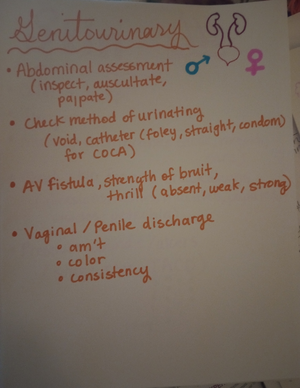 Genitourinary
• Abdominal assessment
(inspect, auscultate,
palpate)
• Check method of urinating
(void, catheter (foley, straight, condom)
for COCA)
• AV fistula, strength of bruit,
thrill (absent, weak, strong)
• Vaginal / Penile discharge
• am't
• color
• consistency